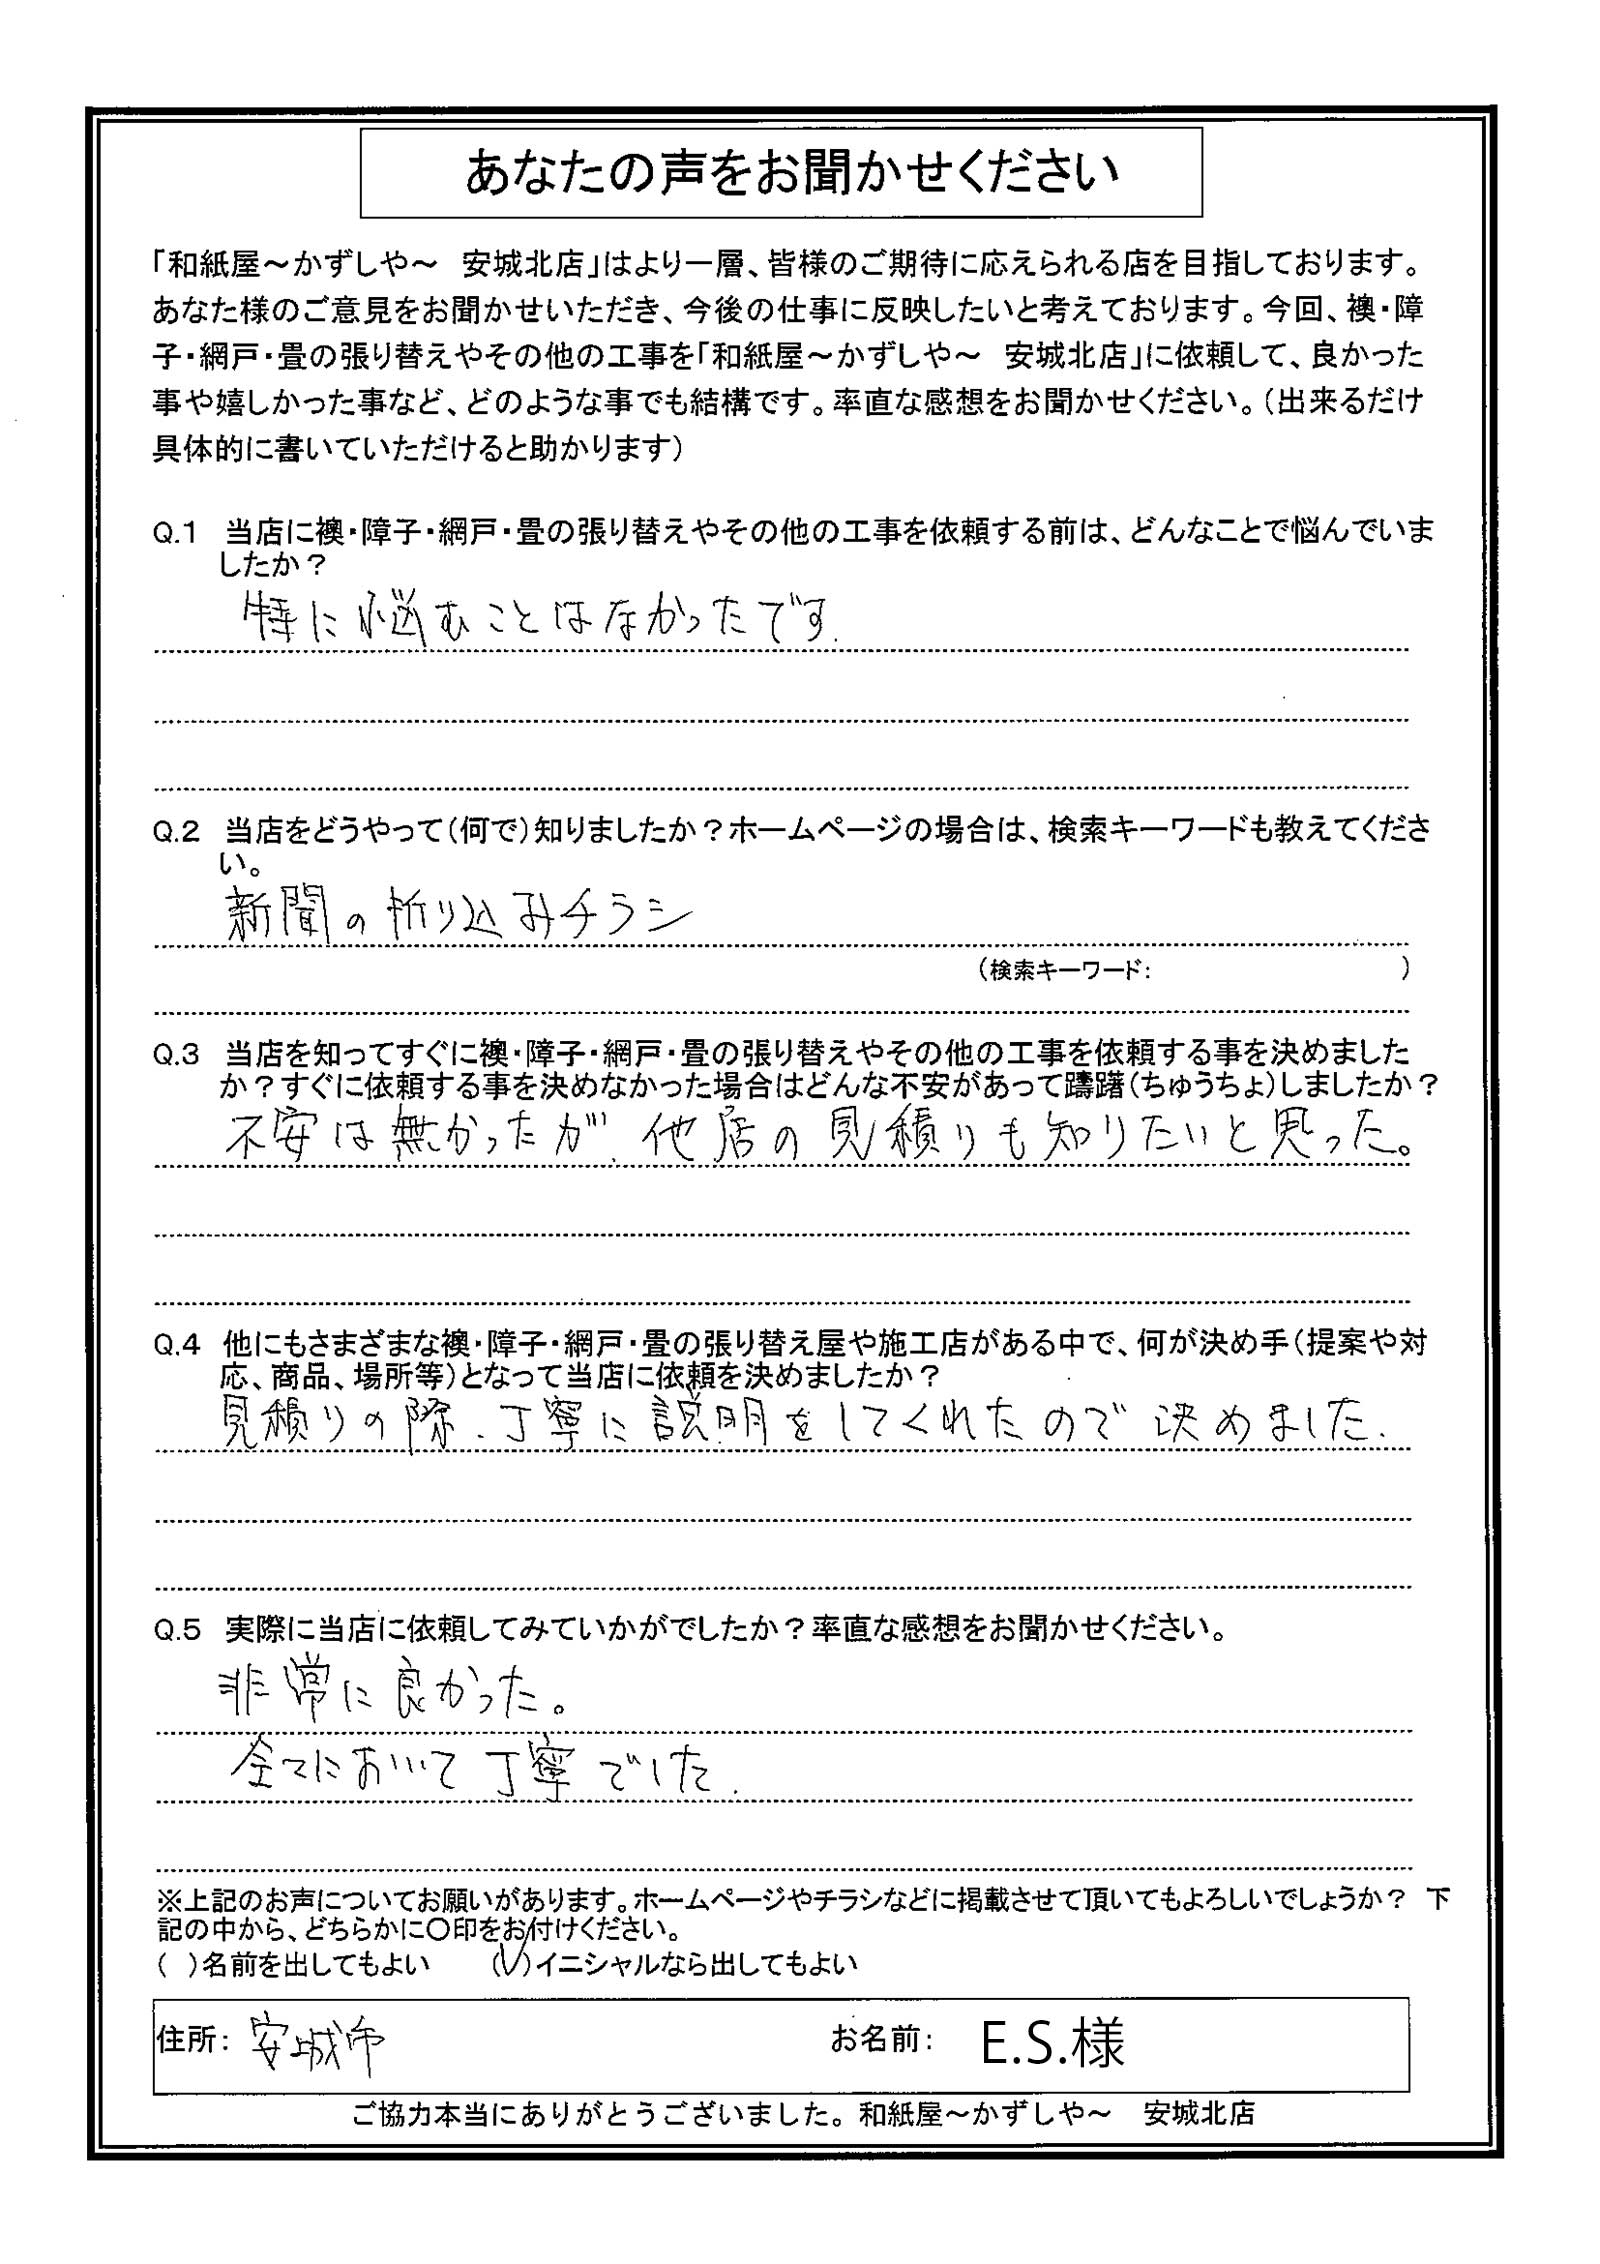 あなたの声をお聞かせください
「和紙屋～かずしや～　安城北店」はより一層、皆様のご期待に応えられる店を目指しております。
あなた様のご意見をお聞かせいただき、今後の仕事に反映したいと考えております。今回、襖・障
子・網戸・畳の張り替えやその他の工事を「和紙屋～かずしや～　安城北店」に依頼して、良かった
事や嬉しかった事など、どのような事でも結構です。率直な感想をお聞かせください。（出来るだけ
具体的に書いていただけると助かります）
Q.1　当店に襖・障子・網戸・畳の張り替えやその他の工事を依頼する前は、どんなことで悩んでいま
したか？
特に悩むことはなかったです.
Q.2　当店をどうやって（何で）知りましたか？ホームページの場合は、検索キーワードも教えてくださ
い。
新聞の折り込みチラシ
（検索キーワード：　　　　　　　　　　）
Q.3　当店を知ってすぐに襖・障子・網戸・畳の張り替えやその他の工事を依頼する事を決めました
か？すぐに依頼する事を決めなかった場合はどんな不安があって躊躇（ちゅうちょ）しましたか？
不安は無かったが、他店の見積りも知りたいと思った。
Q.4　他にもさまざまな襖・障子・網戸・畳の張り替え屋や施工店がある中で、何が決め手（提案や対
応、商品、場所等）となって当店に依頼を決めましたか？
見積りの際、丁寧に説明をしてくれたので決めました.
Q.5　実際に当店に依頼してみていかがでしたか？率直な感想をお聞かせください。
非常に良かった。
全てにおいて丁寧でした.
※上記のお声についてお願いがあります。ホームページやチラシなどに掲載させて頂いてもよろしいでしょうか？　下
記の中から、どちらかに〇印をお付けください。
（　）名前を出してもよい　　（✓）イニシャルなら出してもよい
住所：安城市　　お名前：E.S.様
ご協力本当にありがとうございました。和紙屋～かずしや～　安城北店